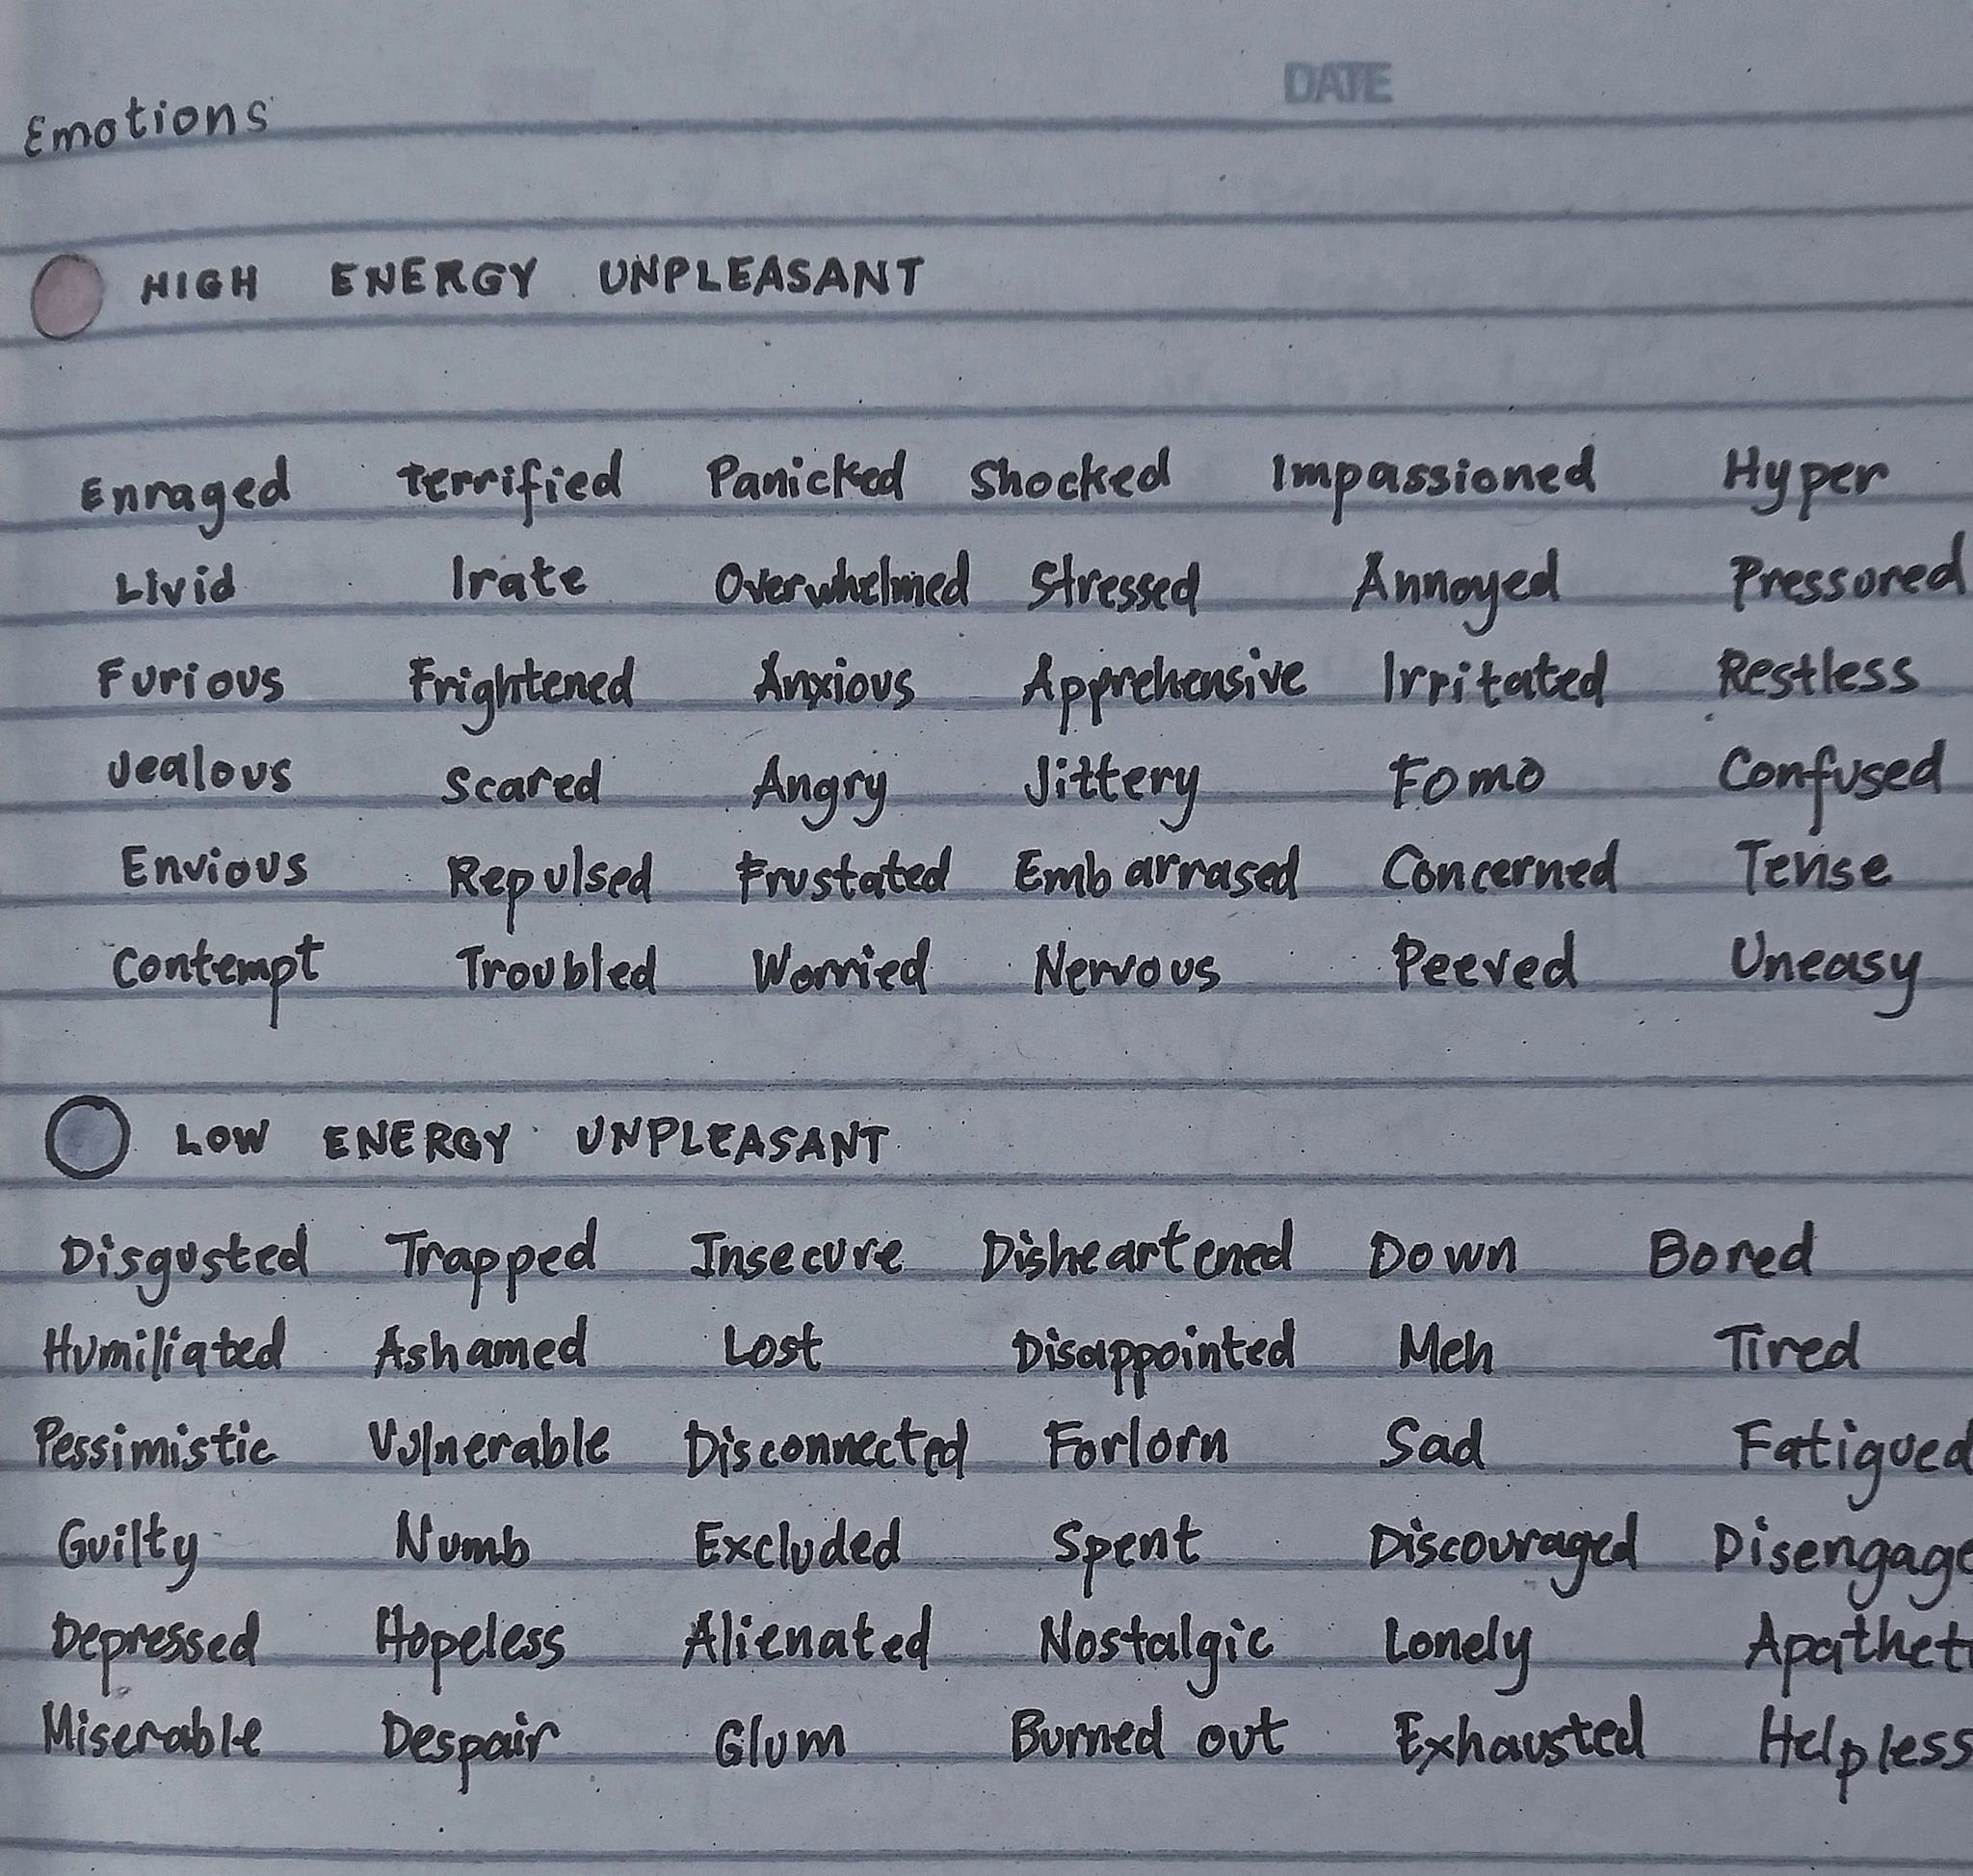 DATE
Emotions
HIGH ENERGY UNPLEASANT
Enraged terrified Panicked Shocked Impassioned Hyper
Livid Irate Overwhelmed Stressed Annoyed Pressored
Furious Frightened Anxious Apprehensive Irritated Restless
Jealous Scared Angry Jittery Fomo Confused
Envious Repulsed Frustated Embarrased Concerned Tense
Contempt Troubled Worried Nervous Peeved Uneasy
LOW ENERGY UNPLEASANT
Disgusted Trapped Insecure Disheartened Down Bored
Humiliated Ashamed Lost Disappointed Meh Tired
Pessimistic Vulnerable Disconnected Forlorn Sad Fatigued
Guilty Numb Excluded Spent Discouraged Disengage
Depressed Hopeless Alienated Nostalgic Lonely Apathet
Miserable Despair Glum Burned out Exhausted Helpless